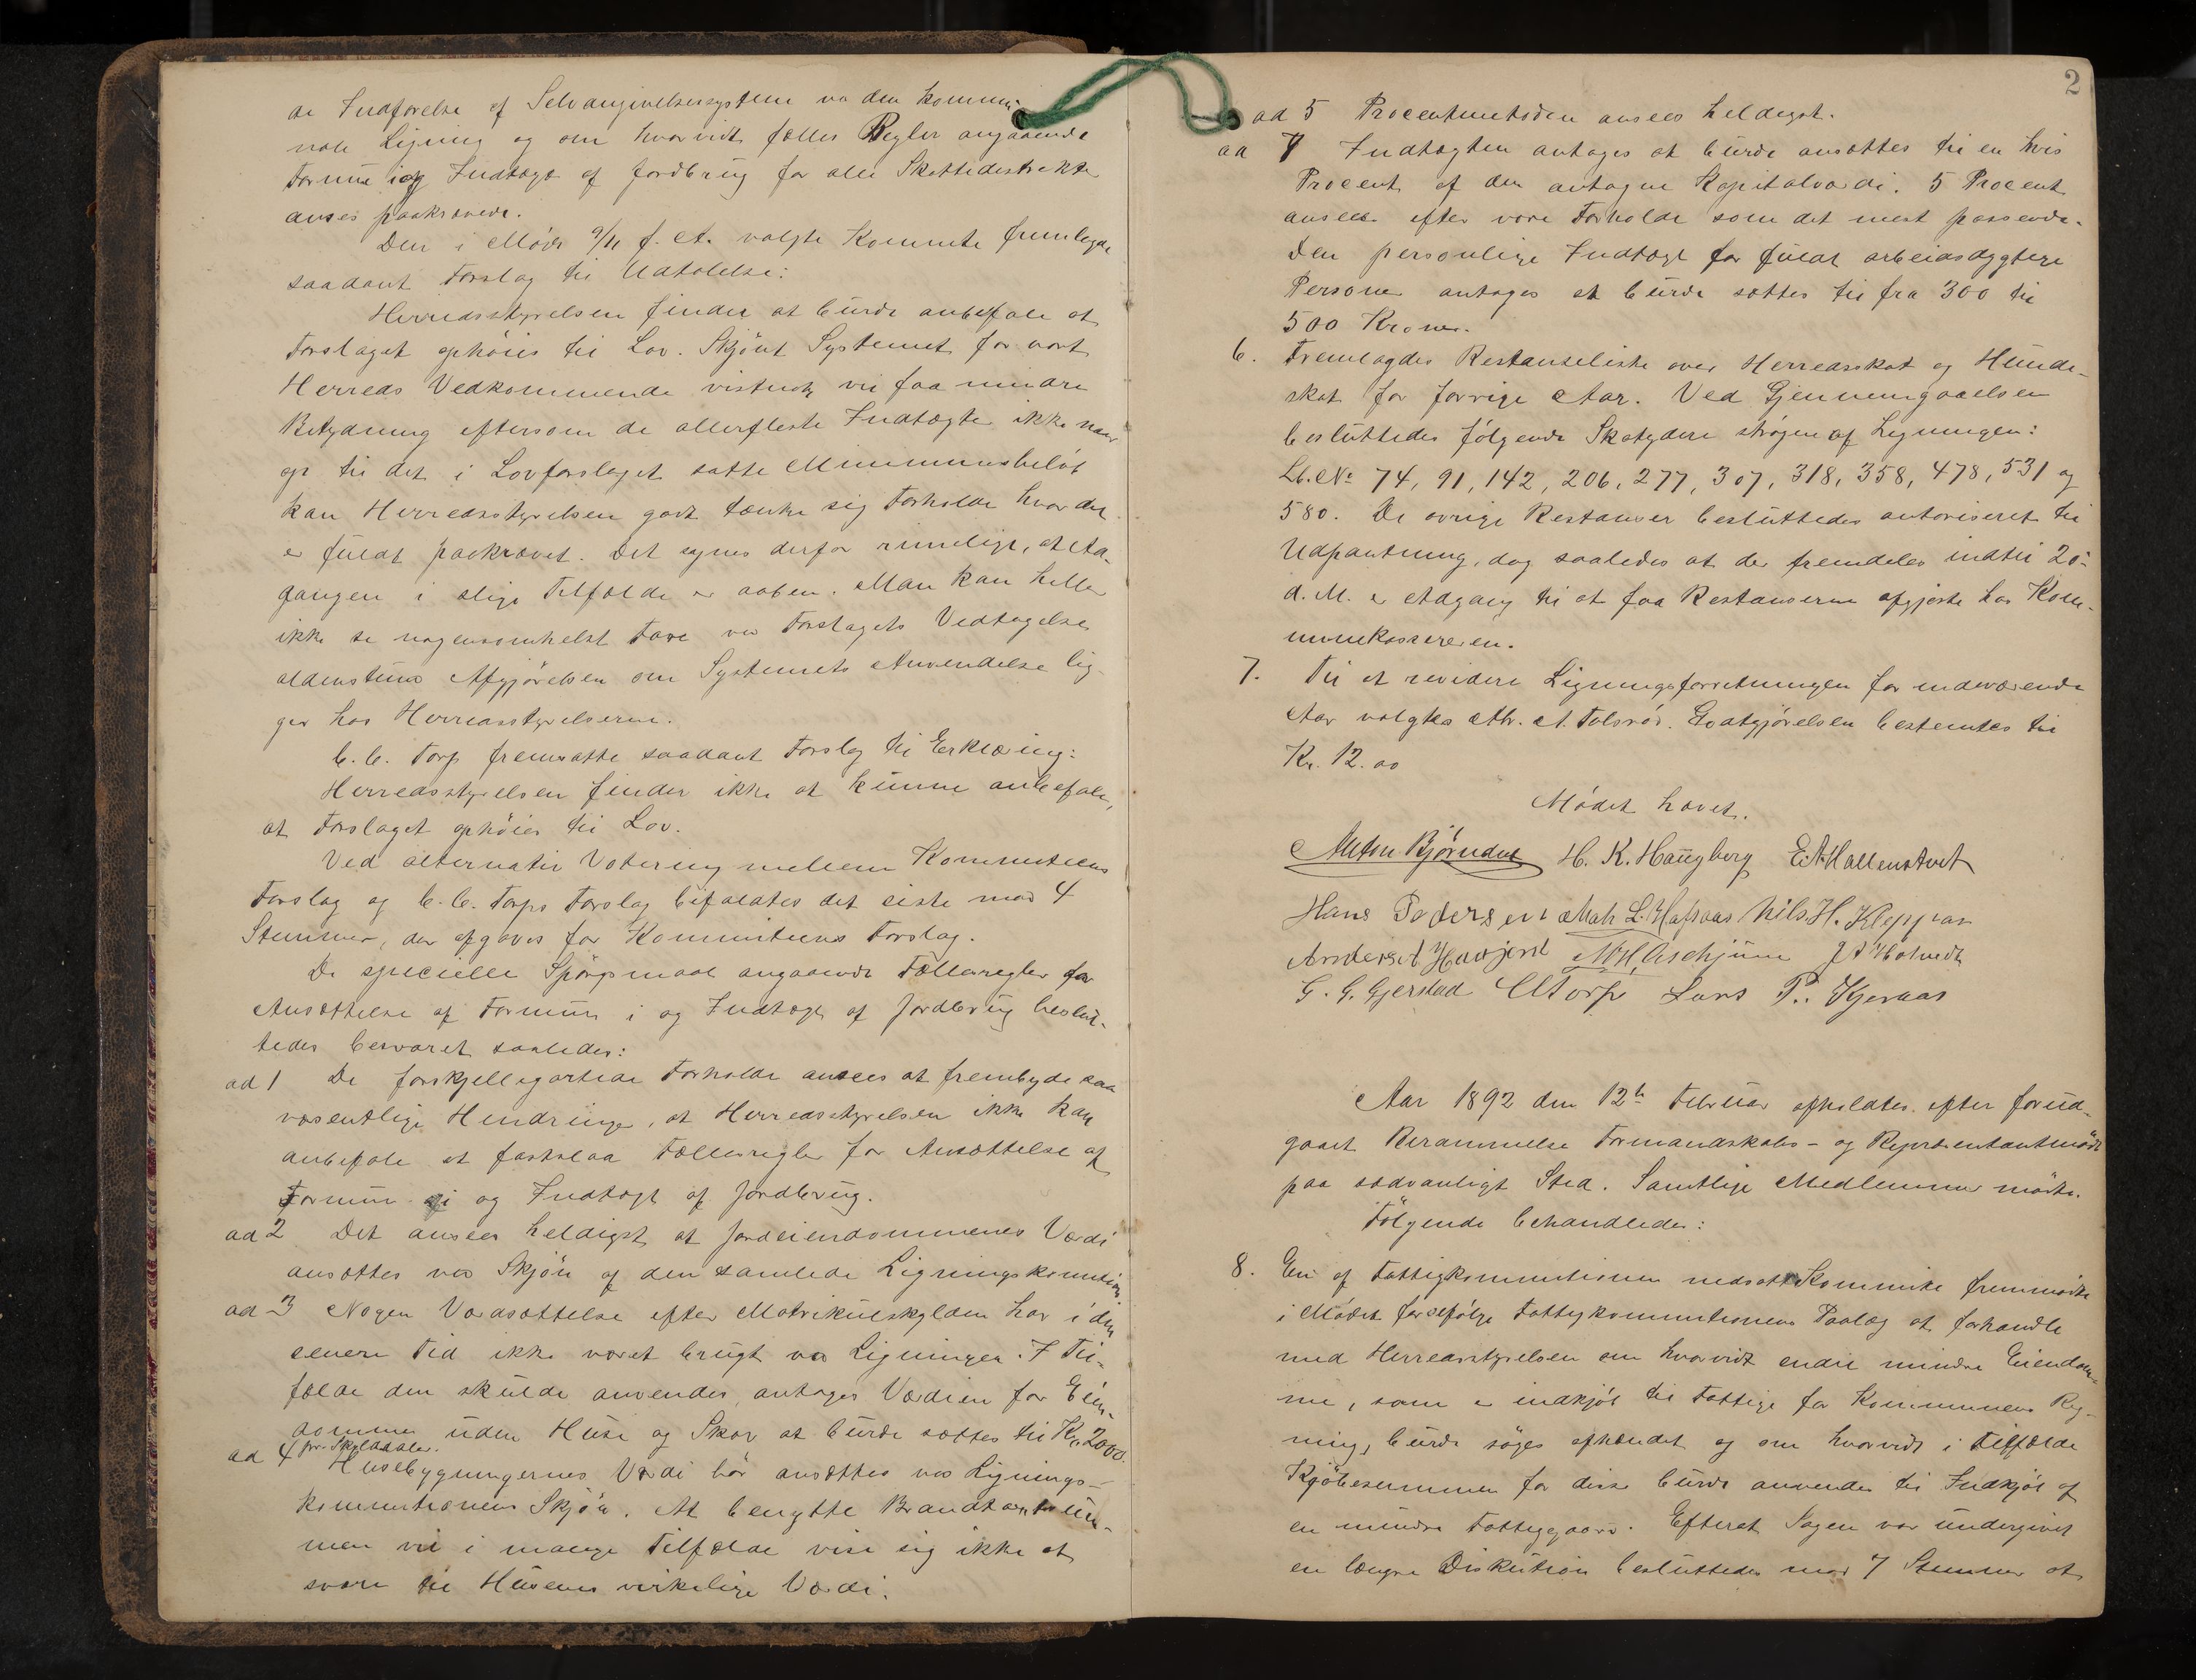 de Indførelse af Selvangivelsessystem ved den kommu-
nale Ligning og om hvorvidt fælles Regler angaaende
Formue i og Indtægt af Jordbrug for alle Skattedistrikter
anses paakrævede.
Den i Møde 9/11 f. A. valgte Komite fremlagde
saadant Forslag til Udtalelse:
Herredsstyrelsen finder at burde anbefale at
Forslaget ophöies til Lov. Skjönt Systemet for vort
Herreds Vedkommende vistnok vil faa mindre
Betydning eftersom de allerfleste Indtægter ikke naar
op til det i Lovforslaget satte Minimumsbelöb
kan Herredsstyrelsen godt tænke sig Forholde hvor det
er fuldt paakrævet. Det synes derfor rimeligt, at Ad-
gangen i slige Tilfælde er aaben. Man kan heller
ikke se nogensomhelst Fare ved Forslagets Vedtagelse
aldenstund Afgjörelsen om Systemets Anvendelse lig-
ger hos Herredsstyrelserne.
C. C. Torp fremsatte saadant Forslag til Erklæring:
Herredsstyrelsen finder ikke at kunne anbefale,
at Forslaget ophöies til Lov.
Ved alternativ Votering mellem Kommiteens
Forslag og C. C. Torps Forslag bifaldtes det siste mod 4
Stemmer, der afgaves for Kommiteens Forslag.
De specielle Spörgsmaal angaaende Fællesregler for
Ansættelse af Formue i og Indtægt af Jordbrug beslut-
tedes besvaret saaledes:
ad 1 De forskjelligartede Forholde ansees at frembyde saa
væsentlige Hindringer, at Herredsstyrelsen ikke kan
anbefale at fastslaa Fællesregler for Ansættelse af
Formue i og Indtægt af Jordbrug.
ad 2 Det ansees heldigst at Jordeiendommenes Værdi
ansættes ved Skjön af den samlede Ligningskommission
ad 3 Nogen Værdsættelse efter Matrikulskylden har i den
senere Tid ikke været brugt ved Ligningen. I Til-
fælde den skulde anvendes, antages Værdien for Eien-
domme uden Huse og Skov at burde sættes til Kr. 2000.
pr. Skylddaler.
ad 4 Husebygningernes Værdi bör ansættes ved Lignings-
kommissionens Skjön. At benytte Brandtaxtsum-
men vil i mange Tilfælde vise sig ikke at
svare til Husenes virkelige Værdi.
2
ad 5 Procentmetoden ansees heldigst.
ad 7 Indtægten antages at burde ansættes til en vis
Procent af den antagne Kapitalværdi. 5 Procent
ansees efter vore Forholde som det mest passende.
Den personlige Indtægt for fuldt arbeidsdygtige
Personer antages at burde sættes til fra 300 til
500 Kroner.
6. Fremlagdes Restanseliste over Herredsskat og Hunde-
skat for forrige Aar. Ved Gjennemgaaelsen
besluttedes følgende Skatydere strøgen af Ligningen:
Lb. No 74, 91, 142, 206, 277, 307, 318, 358, 478, 531 og
580. De øvrige Restanser besluttedes autoriseret til
Udpantning, dog saaledes at der fremdeles indtil 20.
d. M. er Adgang til at faa Restanserne afgjorte hos Kom-
munekassereren.
7. Til at revidere Ligningsforretningen for indeværende
Aar valgtes A. Tolsröd. Godtgjörelsen bestemtes til
Kr. 12.00
Mødet hævet.
Anton Bjørndal H. K. Haugberg E. A. Hallenstvet
Hans Pedersen L. Nils H. Kleppan
Anders J A Holtvedt
G. G. Gjerstad CCTorp Lars P. Kjeraas
Aar 1892 den 12te Februar afholdtes efter forud-
gaaet Berammelse Formandskabs- og Repræsentantmöde
paa sædvanligt Sted. Samtlige Medlemmer mödte.
Fölgende behandledes:
8. En af Fattigkommissionen nedsat Kommite fremmödte
i Mödet for ifölge Fattigkommissionens Paalæg at forhandle
med Herredsstyrelsen om hvorvidt endel mindre Eiendom-
me, som er indkjöbt til Fattige for Kommunens Reg-
ning, burde söges afhændet og om hvorvidt i Tilfælde
Kjöbesummen for disse burde anvendes til Indkjöb af
en mindre Fattiggaard. Efterat Sagen var undergivet
en længre Diskution besluttedes mod 7 Stemmer at